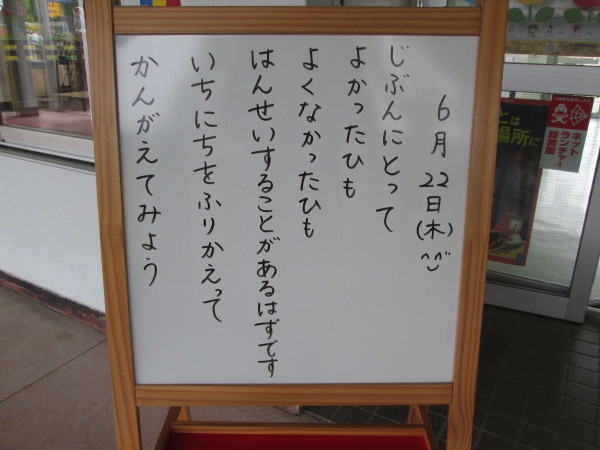 6月22日(木)^^
じぶんにとって
よかったひも
よくなかったひも
はんせいすることがあるはずです
いちにちをふりかえって
かんがえてみよう
ネット
ランチャー
設置園
場所に